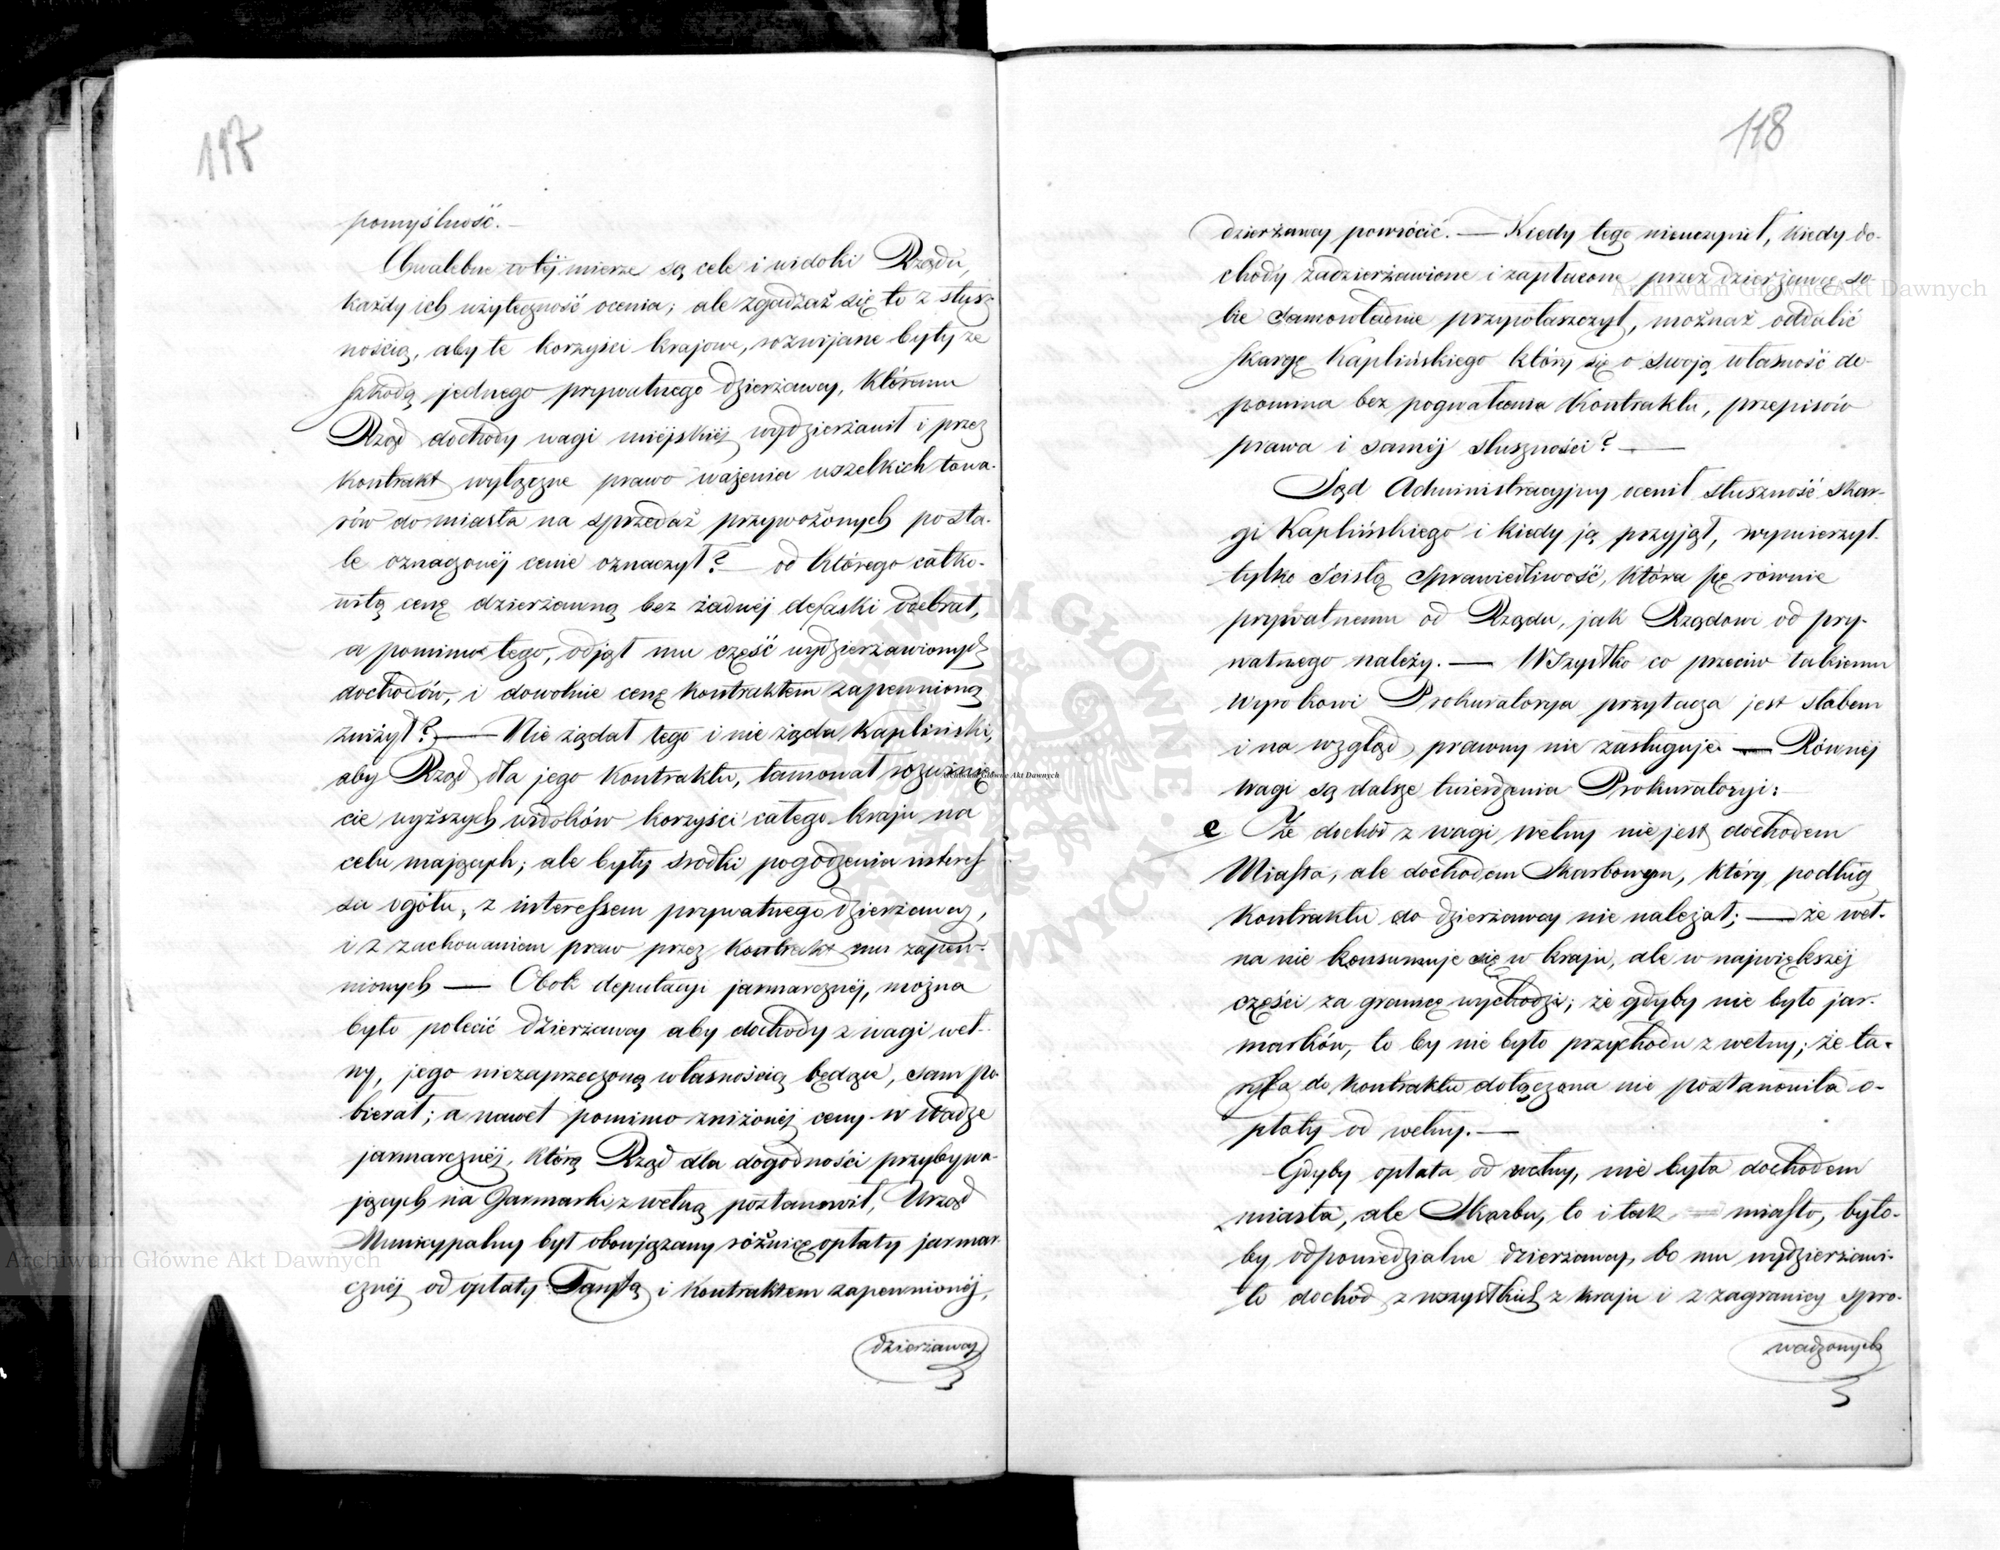 117
pomyślność. —
Chwalebne w téj mierze są cele i widoki Rządu,
każdy ich użyteczność ocenia; ale zgadzaż się to z słusz-
nością, aby te korzyści krajowe, rozwijane były ze
szkodą jednego prywatnego dzierżawcy, któremu
Rząd dochody wagi miejskiéj wydzierżawił i przez
kontrakt wyłączne prawo ważenia wszelkich towa-
rów do miasta na sprzedaż przywożonych po sta-
le oznaczonéj cenie oznaczył? — od którego całko-
witą cenę dzierżawną bez żadnéj defalki odebrał,
a pomimo tego, odjął mu część wydzierżawionych
dochodów, i dowolnie cenę kontraktem zapewnioną
zniżył? — Nie żądał tego i nie żąda Kapliński,
aby Rząd dla jego kontraktu, tamował rozwinię-
cie wyższych widoków korzyści całego kraju na
celu mających; ale były środki pogodzenia interes-
su ogółu, z interessem prywatnego dzierżawcy,
i z zachowaniem praw przez kontrakt mu zapew-
nionych — Obok deputacyi jarmarcznéj, można
było polecić dzierżawcy aby dochody z wagi weł-
ny, jego niezaprzeczoną własnością będące, sam po-
bierał; a nawet pomimo zniżonéj ceny w wadze
jarmarcznéj, którą Rząd dla dogodności przybywa-
jących na Jarmarki z wełną postanowił, Urząd
Municypalny był obowiązany różnicę opłaty jarmar-
cznéj od opłaty Taryfą i kontraktem zapewnionéj,
dzierżawcy
118
dzierżawcy powrócić. — Kiedy tego nieuczynił, kiedy do-
chody zadzierżawione i zapłacone przez dzierżawcę so-
bie samowładnie przywłaszczył, możnaż oddalić
skargę Kaplińskiego który się o swoją własność do-
pomina bez pogwałcenia kontraktu, przepisów
prawa i saméj słuszności? —
Sąd Administracyjny ocenił słuszność skar-
gi Kaplińskiego i kiedy ją przyjął, wymierzył
tylko ścisłą sprawiedliwość, która się równie
prywatnemu od Rządu, jak Rządowi od pry-
watnego należy. — Wszystko co przeciw takiemu
wyrokowi Prokuratorya przytacza jest słabem
i na wzgląd prawny nie zasługuje — Równéj
wagi są dalsze twierdzenia Prokuratoryi: —
e Że dochód z wagi wełny nie jest dochodem
Miasta, ale dochodem Skarbowym, który podług
kontraktu do dzierżawcy nie należał; — że weł-
na nie konsumuje się w kraju, ale w największéj
części za granicę wychodzi; że gdyby nie było jar-
marków, to by nie było przychodu z wełny; że ta-
ryfa do kontraktu dołączona nie postanowiła o-
płaty od wełny. —
Gdyby opłata od wełny, nie była dochodem
miasta, ale Skarbu, to i tak miasto, było-
by odpowiedzialne dzierżawcy, bo mu wydzierżawi-
ło dochód z wszystkich z kraju i z zagranicy spro-
wadzonych
Archiwum Główne Akt Dawnych
Archiwum Główne Akt Dawnych
Archiwum Główne Akt Dawnych
ARCHIWUM GŁÓWNE AKT DAWNYCH